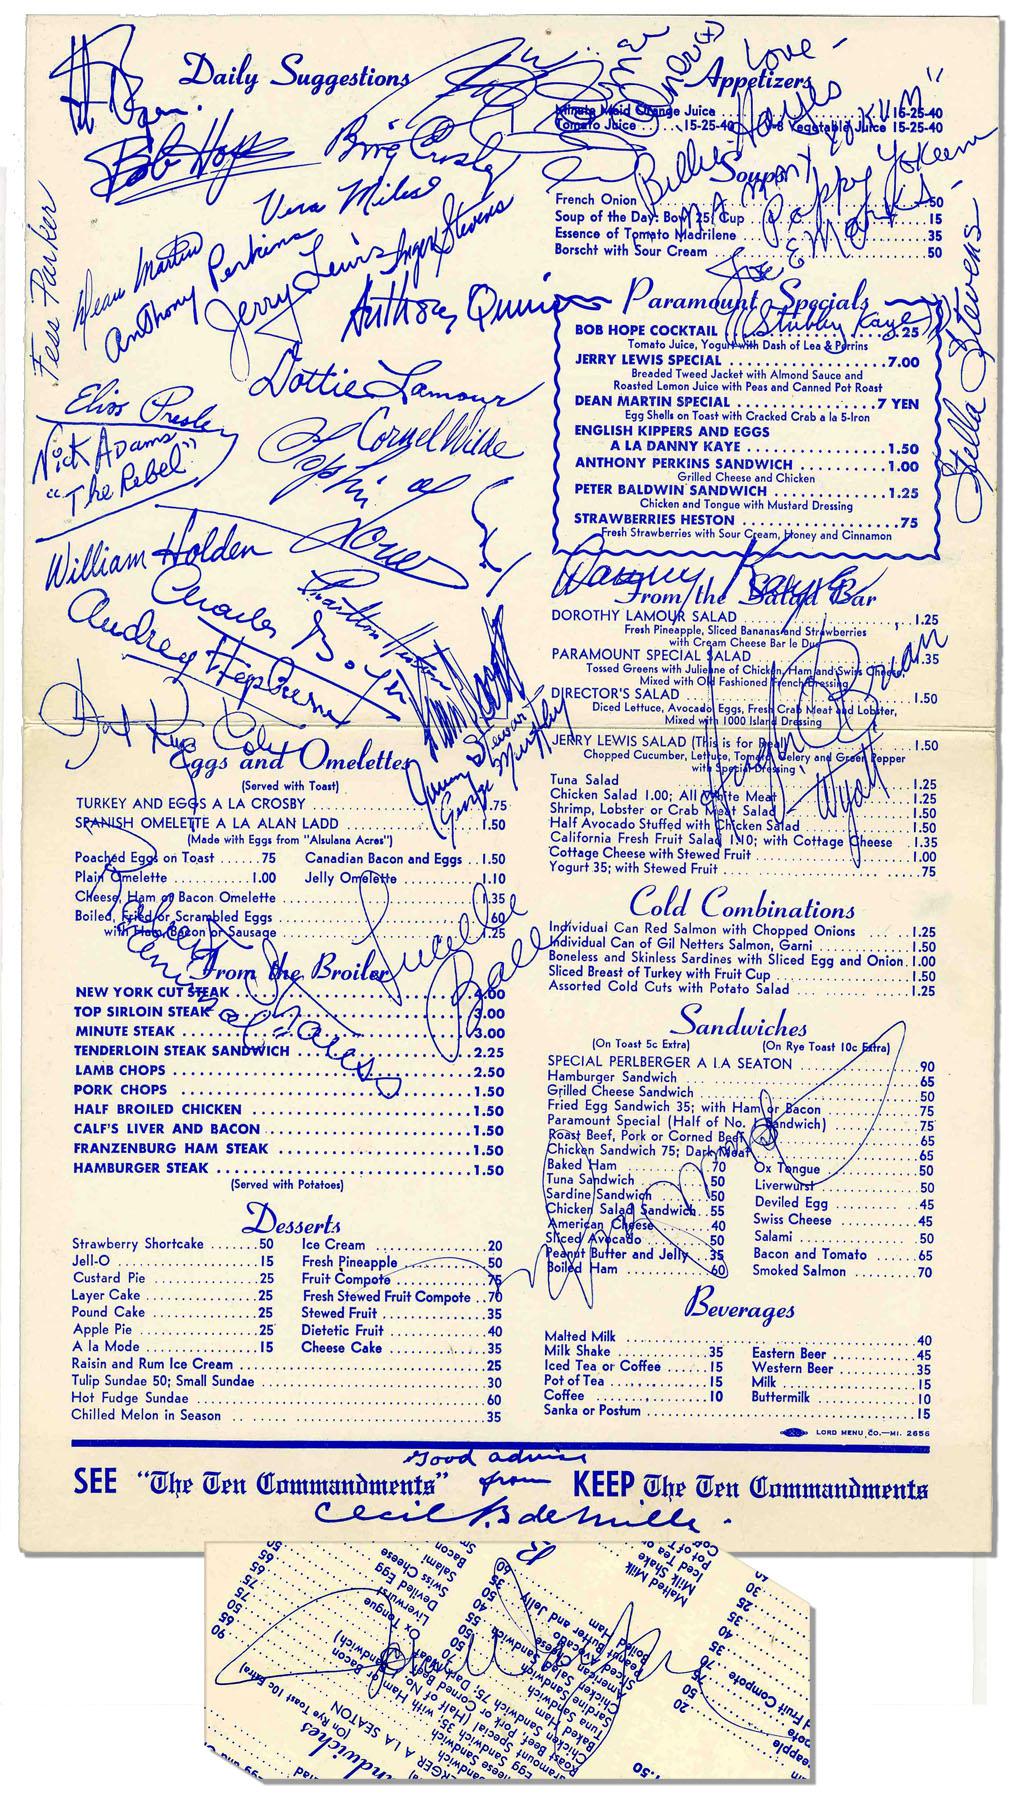 Daily Suggestions
Bob Hope
Bing Crosby
Vera Miles
Fess Parker
Dean Martin
Anthony Perkins
Jerry Lewis
Inger Stevens
Anthony Quinn
Dottie Lamour
Elvis Presley
Nick Adams
"The Rebel"
Cornel Wilde
William Holden
Charles Boyer
Charlton Heston
Audrey Hepburn
Nat King Cole
Jimmy Stewart
George Murphy
Eggs and Omelettes
(Served with Toast)
TURKEY AND EGGS A LA CROSBY .75
SPANISH OMELETTE A LA ALAN LADD 1.50
(Made with Eggs from "Alsulana Acres")
Poached Eggs on Toast .75 Canadian Bacon and Eggs 1.50
Plain Omelette 1.00 Jelly Omelette 1.10
Cheese, Ham or Bacon Omelette 1.35
Boiled, Fried or Scrambled Eggs .60
with Ham, Bacon or Sausage 1.25
Lucille
Ball
From the Broiler
NEW YORK CUT STEAK 4.00
TOP SIRLOIN STEAK 3.00
MINUTE STEAK 3.00
TENDERLOIN STEAK SANDWICH 2.25
LAMB CHOPS 2.50
PORK CHOPS 1.50
HALF BROILED CHICKEN 1.50
CALF'S LIVER AND BACON 1.50
FRANZENBURG HAM STEAK 1.50
HAMBURGER STEAK 1.50
(Served with Potatoes)
Desserts
Strawberry Shortcake 50 Ice Cream 20
Jell-O 15 Fresh Pineapple 50
Custard Pie 25 Fruit Compote 75
Layer Cake 25 Fresh Stewed Fruit Compote 70
Pound Cake 25 Stewed Fruit 35
Apple Pie 25 Dietetic Fruit 40
A la Mode 15 Cheese Cake 35
Raisin and Rum Ice Cream 25
Tulip Sundae 50; Small Sundae 30
Hot Fudge Sundae 60
Chilled Melon in Season 35
Appetizers
Minute Maid Orange Juice 15-25-40
Tomato Juice 15-25-40 V-8 Vegetable Juice 15-25-40
Love -
Billie Hayes
Mammy Yokum
Pappy Yokum
Joe E Marks
Soups
French Onion 50
Soup of the Day: Bowl 25; Cup 15
Essence of Tomato Madrilene 35
Borscht with Sour Cream 50
Paramount Specials
(Stubby Kaye)
Stella Stevens
BOB HOPE COCKTAIL .25
Tomato Juice, Yogurt with Dash of Lea & Perrins
JERRY LEWIS SPECIAL 7.00
Breaded Tweed Jacket with Almond Sauce and
Roasted Lemon Juice with Peas and Canned Pot Roast
DEAN MARTIN SPECIAL 7 YEN
Egg Shells on Toast with Cracked Crab a la 5-Iron
ENGLISH KIPPERS AND EGGS
A LA DANNY KAYE 1.50
ANTHONY PERKINS SANDWICH 1.00
Grilled Cheese and Chicken
PETER BALDWIN SANDWICH 1.25
Chicken and Tongue with Mustard Dressing
STRAWBERRIES HESTON .75
Fresh Strawberries with Sour Cream, Honey and Cinnamon
Danny Kaye
From the Salad Bar
DOROTHY LAMOUR SALAD 1.25
Fresh Pineapple, Sliced Bananas and Strawberries
with Cream Cheese Bar le Duc
PARAMOUNT SPECIAL SALAD 1.35
Tossed Greens with Julienne of Chicken, Ham and Swiss Cheese,
Mixed with Old Fashioned French Dressing
DIRECTOR'S SALAD 1.50
Diced Lettuce, Avocado, Eggs, Fresh Crab Meat and Lobster,
Mixed with 1000 Island Dressing
JERRY LEWIS SALAD (This is for Real) 1.50
Chopped Cucumber, Lettuce, Tomato, Celery and Green Pepper
with Special Dressing
Hugh O'Brian
Wyatt
Tuna Salad 1.25
Chicken Salad 1.00; All White Meat 1.25
Shrimp, Lobster or Crab Meat Salad 1.50
Half Avocado Stuffed with Chicken Salad 1.50
California Fresh Fruit Salad 1.10; with Cottage Cheese 1.35
Cottage Cheese with Stewed Fruit 1.00
Yogurt 35; with Stewed Fruit .75
Cold Combinations
Individual Can Red Salmon with Chopped Onions 1.25
Individual Can of Gil Netters Salmon, Garni 1.50
Boneless and Skinless Sardines with Sliced Egg and Onion 1.00
Sliced Breast of Turkey with Fruit Cup 1.50
Assorted Cold Cuts with Potato Salad 1.25
Sandwiches
(On Toast 5c Extra) (On Rye Toast 10c Extra)
SPECIAL PERLBERGER A LA SEATON 90
Hamburger Sandwich 65
Grilled Cheese Sandwich 50
Fried Egg Sandwich 35; with Ham or Bacon 75
Paramount Special (Half of No. 1 Sandwich) 75
Roast Beef, Pork or Corned Beef 65
Chicken Sandwich 75; Dark Meat 65
Baked Ham 70 Ox Tongue 50
Tuna Sandwich 50 Liverwurst 50
Sardine Sandwich 50 Deviled Egg 45
Chicken Salad Sandwich 55 Swiss Cheese 45
American Cheese 40 Salami 50
Sliced Avocado 50 Bacon and Tomato 65
Peanut Butter and Jelly 35 Smoked Salmon 70
Boiled Ham 60
Beverages
Malted Milk 40
Milk Shake 35 Eastern Beer 45
Iced Tea or Coffee 15 Western Beer 35
Pot of Tea 15 Milk 15
Coffee 10 Buttermilk 10
Sanka or Postum 15
LORD MENU CO.—MI. 2656
Good advice
SEE "The Ten Commandments" from KEEP The Ten Commandments
Cecil B deMille.
John Wayne